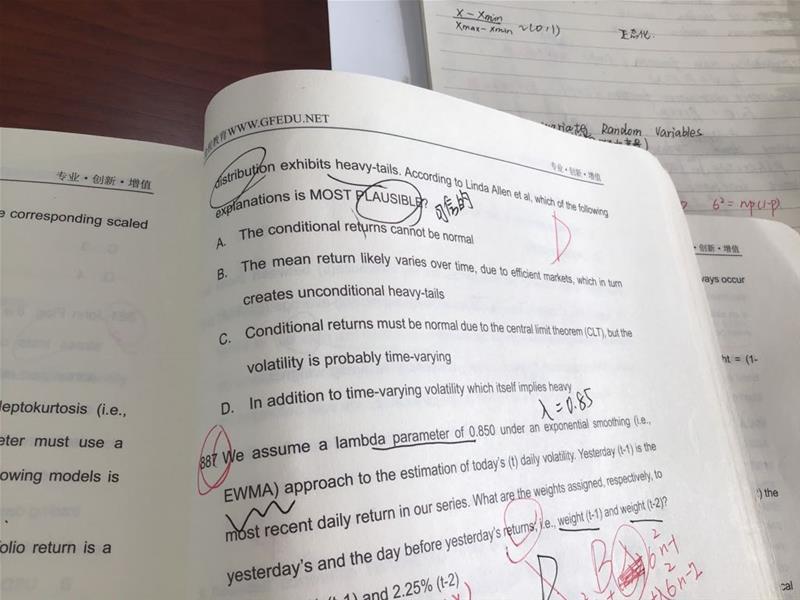 X - Xmin
Xmax - Xmin ~ (0,1) 正态化
Random Variables
6² = np(1-p)
教育WWW.GFEDU.NET
专业·创新·增值
distribution exhibits heavy-tails. According to Linda Allen et al, which of the following
explanations is MOST PLAUSIBLE? 可信的
D
A. The conditional returns cannot be normal
B. The mean return likely varies over time, due to efficient markets, which in turn
creates unconditional heavy-tails
C. Conditional returns must be normal due to the central limit theorem (CLT), but the
volatility is probably time-varying
D. In addition to time-varying volatility which itself implies heavy
λ=0.85
887 We assume a lambda parameter of 0.850 under an exponential smoothing (i.e.,
EWMA) approach to the estimation of today's (t) daily volatility. Yesterday (t-1) is the
most recent daily return in our series. What are the weights assigned, respectively, to
yesterday's and the day before yesterday's returns, i.e., weight (t-1) and weight (t-2)?
(t-1) and 2.25% (t-2)
D
B
6²n-1
6²n-2
专业·创新·增值
e corresponding scaled
leptokurtosis (i.e.,
eter must use a
owing models is
folio return is a
专业·创新·增值
ways occur
ht = (1-
) the
cal